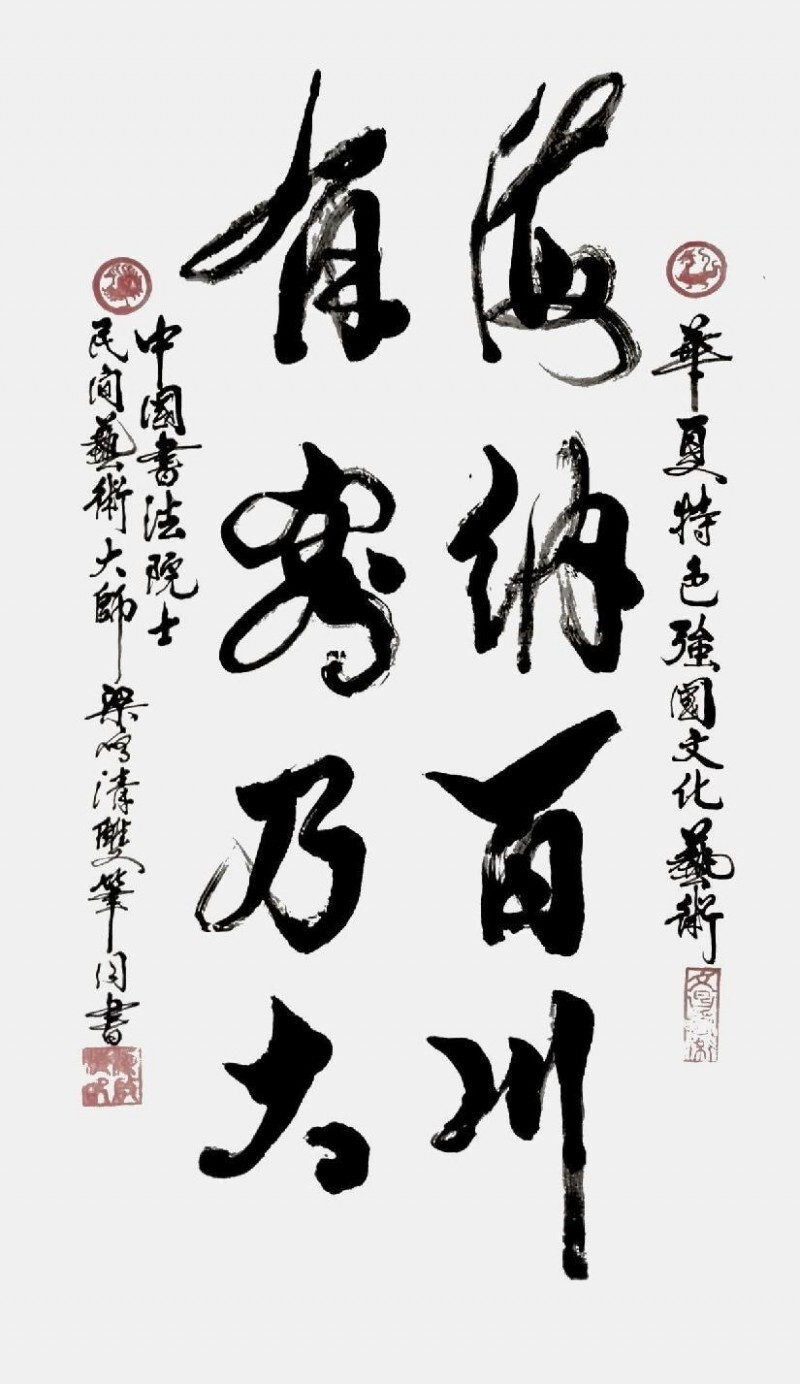 華夏特色強國文化藝術
海纳百川
有容乃大
中國書法院士
民间藝術大師梁鸣清雙筆同書